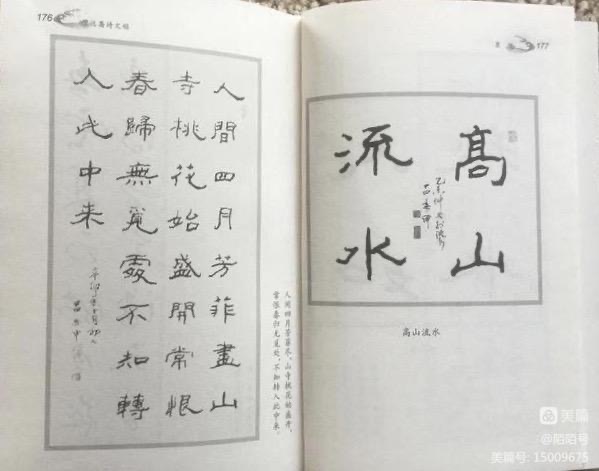 176
人間四月芳菲盡山
寺桃花始盛開常恨
春歸無覓處不知轉
入此中来
人间四月芳菲尽，山寺桃花始盛开，
常恨春归无觅处，不知转入此中来。
177
髙山
流水
高山流水
美篇
@陌陌号
美篇号: 15009675